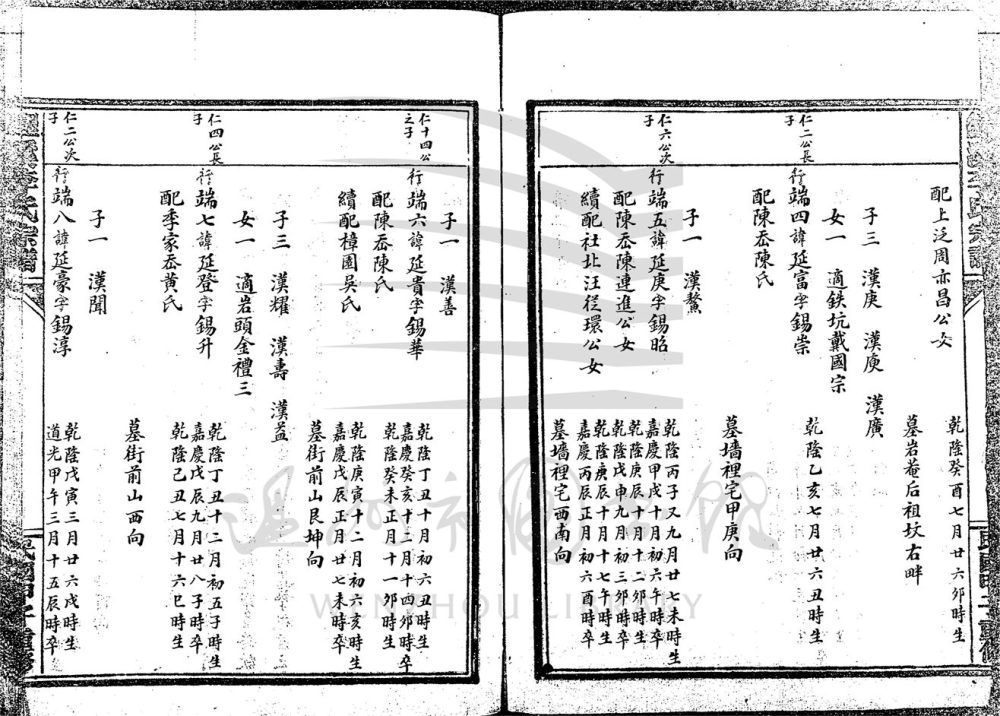 配上泛周亦昌公女
乾隆癸酉七月廿六卯時生
墓岩菴后祖坟右畔
子三 漢庚 漢庾 漢廣
女一 適鉄坑戴國宗
仁二公長子
行端四諱延富字錫崇
乾隆乙亥七月廿六丑時生
配陳岙陳氏
墓墻裡宅甲庚向
子一 漢鰲
仁六公次子
行端五諱延庚字錫昭
乾隆丙子又九月廿七未時生
嘉慶甲戌十月初六午時卒
配陳岙陳連進公女
乾隆庚辰十月十二卯時生
乾隆戊申九月初三卯時卒
續配社北汪従環公女
乾隆庚辰十月十七午時生
嘉慶丙辰正月初六酉時卒
墓墻裡宅西南向
子一 漢善
仁十四公之子
行端六諱延貴字錫華
乾隆丁丑十月初六丑時生
嘉慶癸亥十二月十四卯時卒
配陳岙陳氏
乾隆癸未正月十一卯時生
續配樟園吳氏
乾隆庚寅十二月初六亥時生
嘉慶戊辰正月廿七未時卒
墓街前山艮坤向
子三 漢耀 漢壽 漢益
女一 適岩頭金禮三
仁四公長子
行端七諱延登字錫升
乾隆丁丑十二月初五子時生
嘉慶戊辰九月廿八子時卒
配季家岙黃氏
乾隆己丑七月十六巳時生
墓街前山西向
子一 漢聞
仁二公次子
行端八諱延豪字錫淳
乾隆戊寅三月廿六戌時生
道光甲午三月十五辰時卒
WENZHOU LIBRARY